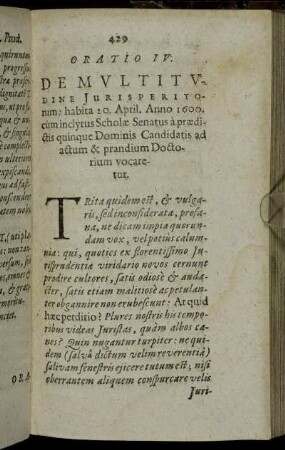 429
ORATIO IV.
DE MVLTITV-
DINE JURISPERITO-
rum; habita 20. April. Anno 1600.
cùm inclytus Scholæ Senatus à prædi-
ctis quinque Dominis Candidatis ad
actum & prandium Docto-
rium vocare-
tur.
TRita quidem est, & vulga-
ris, sed inconsiderata, profa-
na, ne dicam impia quorun-
dam vox, vel potius calum-
nia: qui, quoties ex florentissimo Ju-
risprudentiæ viridario novos cernunt
prodire cultores, satis odiosè & auda-
cter, satis etiam malitiosè ac petulan-
ter obgannire non erubescunt: At quid
hæc perditio? Plures nostris his tempo-
ribus videas Juristas, quàm albos ca-
nes? Quin nugantur turpiter: ne qui-
dem (salvâ dictum velim reverentiâ)
salivam fenestris ejicere tutum est; nisi
oberrantem aliquem conspurcare velis
Juri-